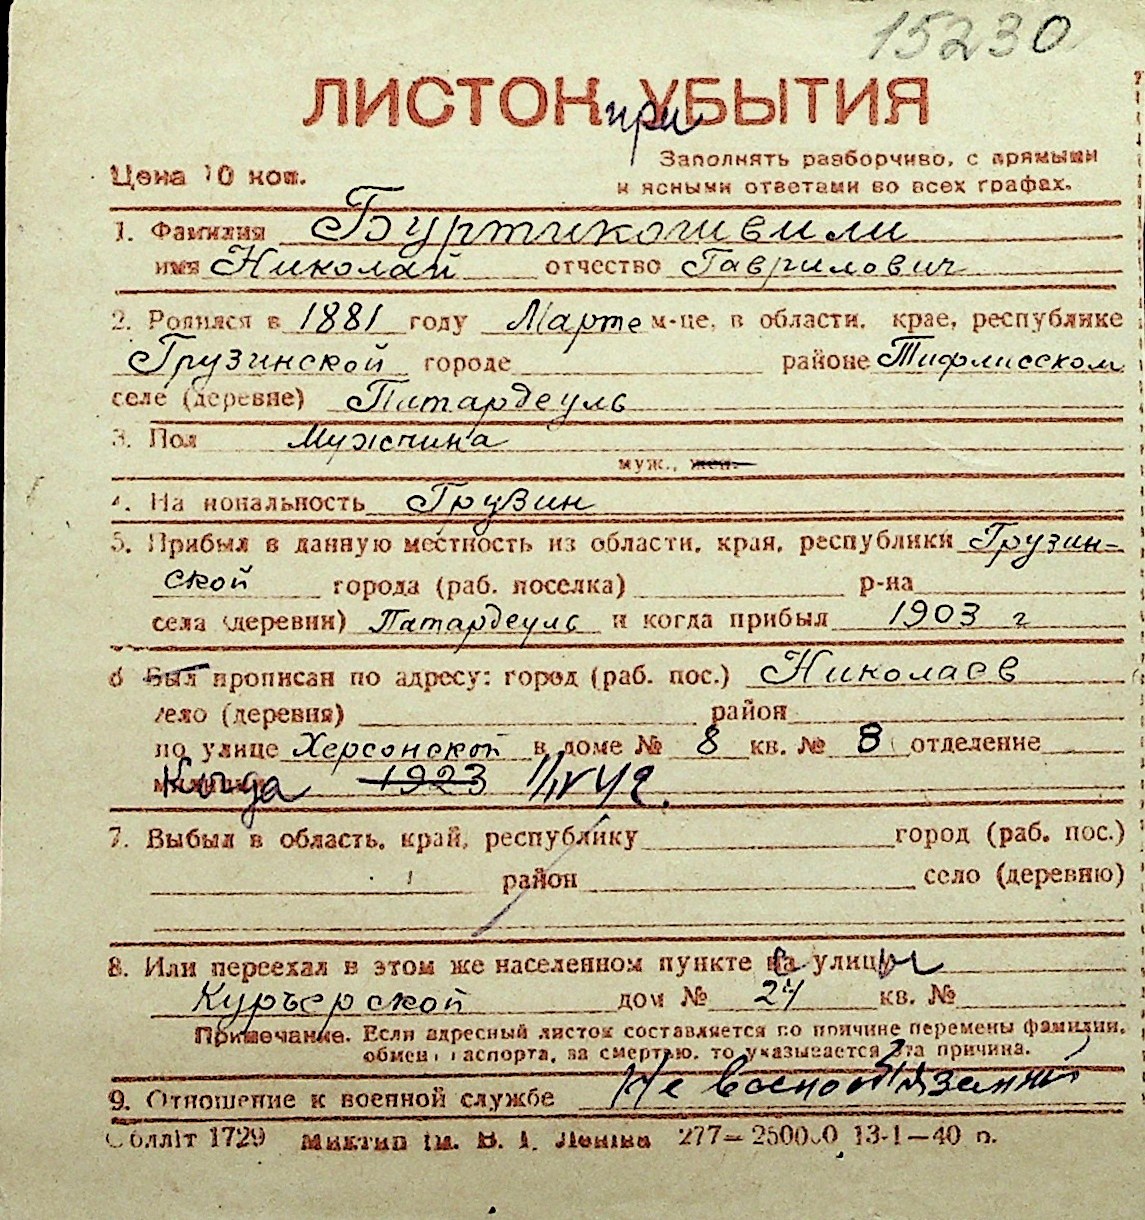 15230
ЛИСТОК при УБЫТИЯ
Цена 10 коп.
Заполнять разборчиво, с прямыми
и ясными ответами во всех графах.
1. Фамилия Буртикошвили
имя Николай отчество Гаврилович
2. Родился в 1881 году Марте м-це, в области, крае, республике
Грузинской городе районе Тифлисском
селе (деревне) Патардеуль
3. Пол Мужчина
муж., жен.
4. Национальность Грузин
5. Прибыл в данную местность из области, края, республики Грузин-
ской города (раб. поселка) р-на
села (деревни) Патардеуль и когда прибыл 1903 г
6 Был прописан по адресу: город (раб. пос.) Николаев
село (деревня) район
по улице Херсонской в доме № 8 кв. № 8 отделение
Когда 1923
7. Выбыл в область, край, республику город (раб. пос.)
район село (деревню)
8. Или переехал в этом же населенном пункте с улицы
Курьерской дом № 24 кв. №
Примечание. Если адресный листок составляется по причине перемены фамилии,
обмена паспорта, за смертью, то указывается эта причина.
9. Отношение к военной службе Не военнообязанный
Облліт 1729 Миктип ім. В. І. Леніна 277— 13-1—40 р.